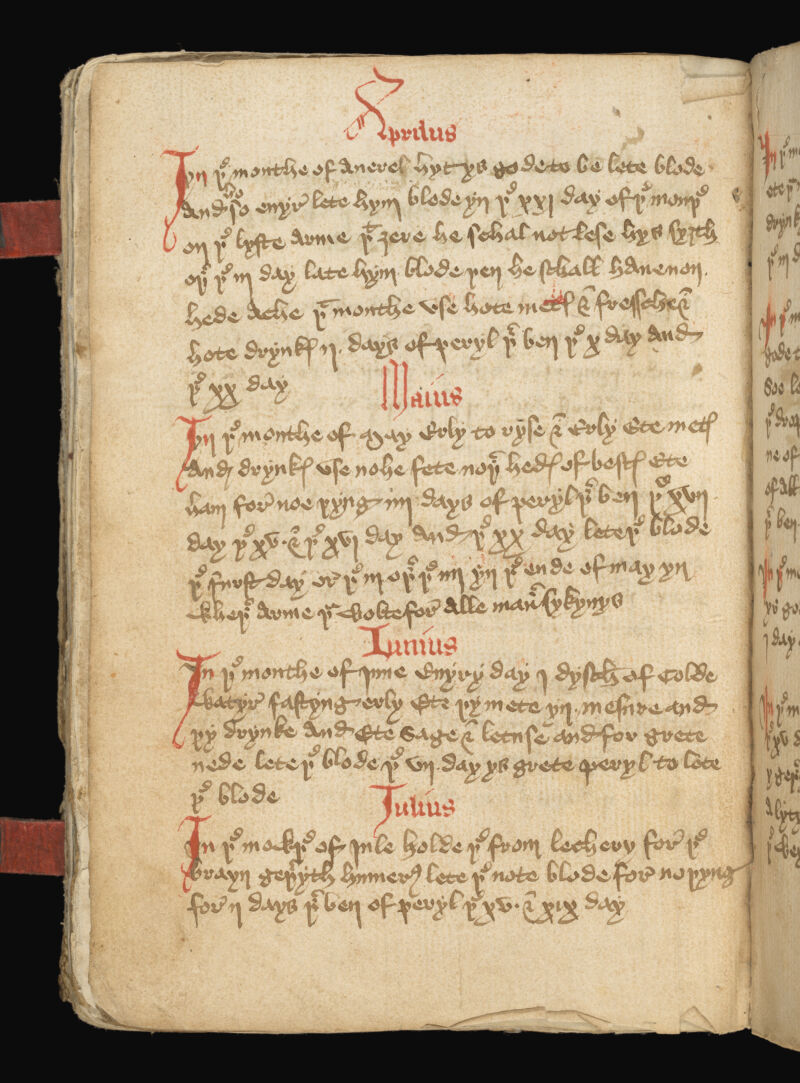 Aprilus
Yn þe monthe of Averel hyt ys gode to be lete blode
And ho so evyr lete hym blode yn þe xxj day of þe monþe
on þe lyfte Arme þt ȝere he schal not lese hys syȝth
oþr þe iij day late hym blode þen he schall haue non
hede Ache þt monthe vse hote metes & fressche &
hote drynkes ij days of peryl þer ben þe x day And
þe xx day
Maius
Yn þe monthe of may Erly to ryse & Erly Ete metes
And drynkes vse no he fete noþr hedes of bestes Ete
ham for noe þyng iiij days of peryl þer ben þe xvij
day þe xv & þe xvj day And þe xx day lete þe blode
þe furst day or þe iij oþr þe iiij yn þe ende of may yn
wheþr Arme þu wolte for Alle manr sykynys
Iunius
In þe monthe of june Evyry day j dysch of Colde
watyr fastyng erly Ete þy mete yn mesure and
þy drynke And Ete Sage & letuse and for grete
nede lete þe blode þe vij day ys grete peryl to lete
þe blode
Iulius
In þe mowþe of jule holde þe from lechery for þe
brayn geþryth humerys lete þe note blode for no þyng
for ij days þer ben of peryl þe xv & xix day